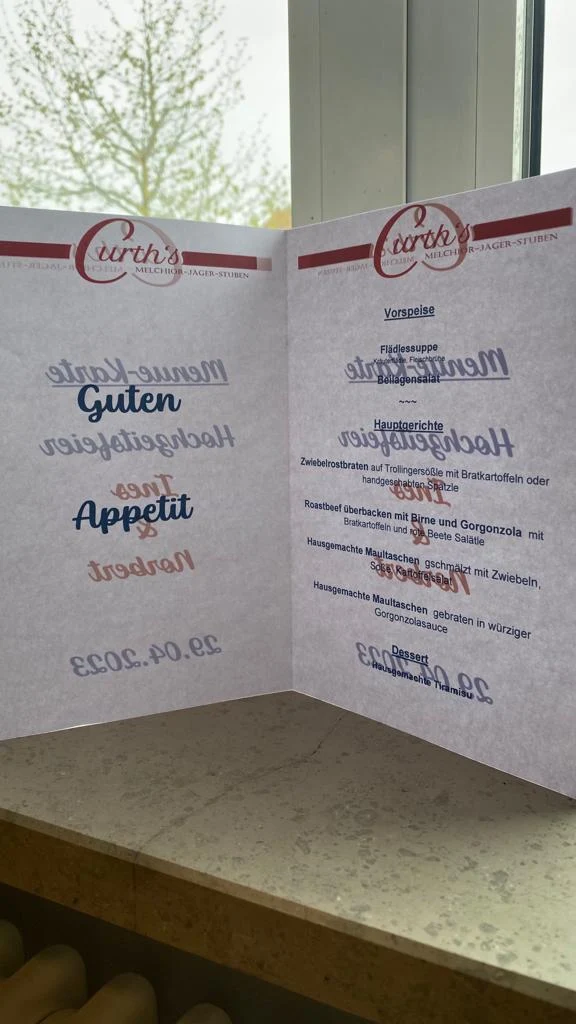 Curth's
MELCHIOR-JÄGER-STUBEN
Menue-Karte
Guten
Hochzeitsfeier
Ines
Appetit
&
Norbert
29.04.2023
Curth's
MELCHIOR-JÄGER-STUBEN
Vorspeise
Flädlessuppe
Kräuterflädle, Fleischbrühe
Menue-Karte
Beilagensalat
~~~
Hauptgerichte
Hochzeitsfeier
Zwiebelrostbraten auf Trollingersößle mit Bratkartoffeln oder
handgeschabten Spätzle
Ines
Roastbeef überbacken mit Birne und Gorgonzola mit
Bratkartoffeln und rote Beete Salätle
&
Hausgemachte Maultaschen gschmälzt mit Zwiebeln,
Soße, Kartoffelsalat
Norbert
Hausgemachte Maultaschen gebraten in würziger
Gorgonzolasauce
Dessert
29.04.2023
Hausgemachte Tiramisu